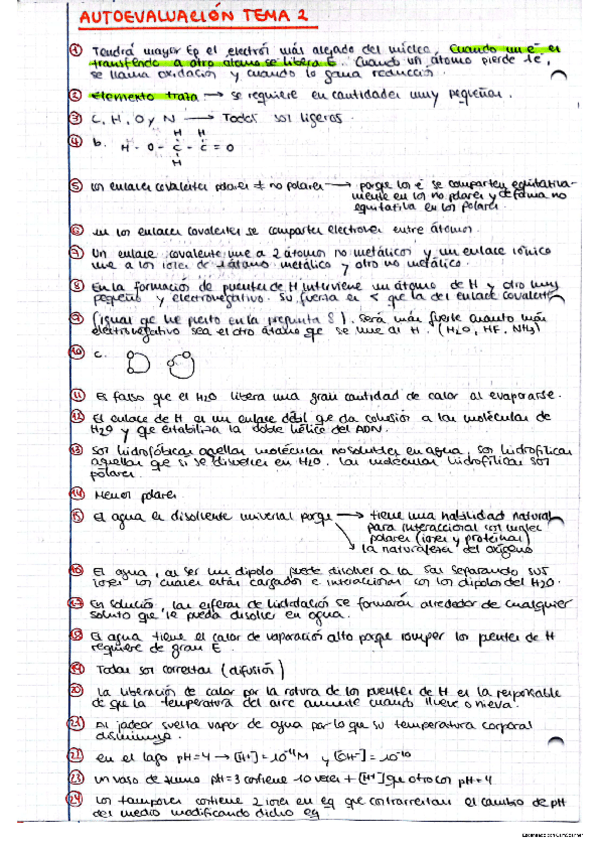 AUTOEVALUACIÓN TEMA 2
① Tendrá mayor Ep el electrón más alejado del núcleo. Cuando un e⁻ es
transferido a otro átomo se libera E. Cuando un átomo pierde 1e⁻,
se llama oxidación y cuando lo gana reducción.
② Elemento traza → se requiere en cantidades muy pequeñas.
③ C, H, O y N → Todos son ligeros.
④ b.
H H
H - O - C - C = O
H
⑤ Los enlaces covalentes polares ≠ no polares → porque los e⁻ se comparten equitativa-
mente en los no polares y de forma no
equitativa en los polares.
⑥ En los enlaces covalentes se comparten electrones entre átomos.
⑦ Un enlace covalente une a 2 átomos no metálicos y un enlace iónico
une a los iones de 1 átomo metálico y otro no metálico.
⑧ En la formación de puentes de H interviene un átomo de H y otro muy
pequeño y electronegativo. Su fuerza es < que la del enlace covalente
⑨ (igual que he puesto en la pregunta 8). Será más fuerte cuanto más
electronegativo sea el otro átomo que se une al H. (H₂O, HF, NH₃)
⑩ c.
⑪ Es falso que el H₂O libera una gran cantidad de calor al evaporarse.
⑫ El enlace de H es un enlace débil que da cohesión a las moléculas de
H₂O y que estabiliza la doble hélice del ADN.
⑬ Son hidrofóbicas aquellas moléculas no solubles en agua, son hidrofílicas
aquellas que si se disuelven en H₂O. Las moléculas hidrofílicas son
polares.
⑭ Menos polares
⑮ El agua es disolvente universal porque → tiene una habilidad natural
para interaccionar con moléc
polares (iones y proteínas)
la naturaleza del oxígeno
⑯ El agua, al ser un dipolo puede disolver a la sal separando sus
iones los cuales están cargados e interaccionan con los dipolos del H₂O.
⑰ En solución, las esferas de hidratación se formarán alrededor de cualquier
soluto que se pueda disolver en agua.
⑱ El agua tiene el calor de vaporación alto porque romper los puentes de H
requiere de gran E.
⑲ Todas son correctas (difusión)
⑳ La liberación de calor por la rotura de los puentes de H es la responsable
de que la temperatura del aire aumente cuando llueve o nieva.
㉑ Al jadear suelta vapor de agua por lo que su temperatura corporal
disminuye.
㉒ en el lago pH=4 → [H⁺] = 10⁻⁴M y [OH⁻] = 10⁻¹⁰
㉓ un vaso de zumo pH=3 contiene 10 veces + [H⁺] que otro con pH=4
㉔ Los tampones contiene 2 iones en eq que contrarrestan el cambio de pH
del medio modificando dicho eq.